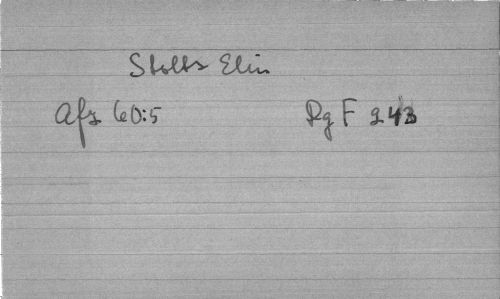 Stolts Elin
Afz 60:5 Rg F 243